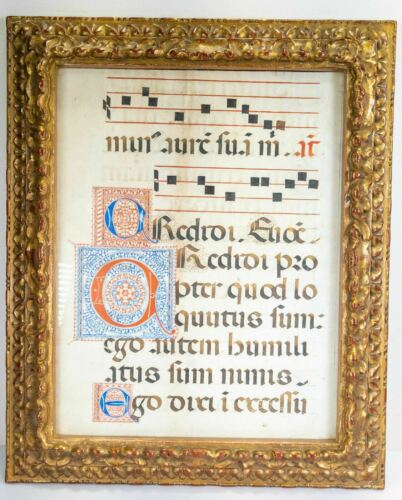 minꝰ aurē suā m. āt
Credidi. Euoē.
Credidi pro
pter quod lo
quutus sum:
ego autem humili
atus sum nimis
Ego dixi i excessu